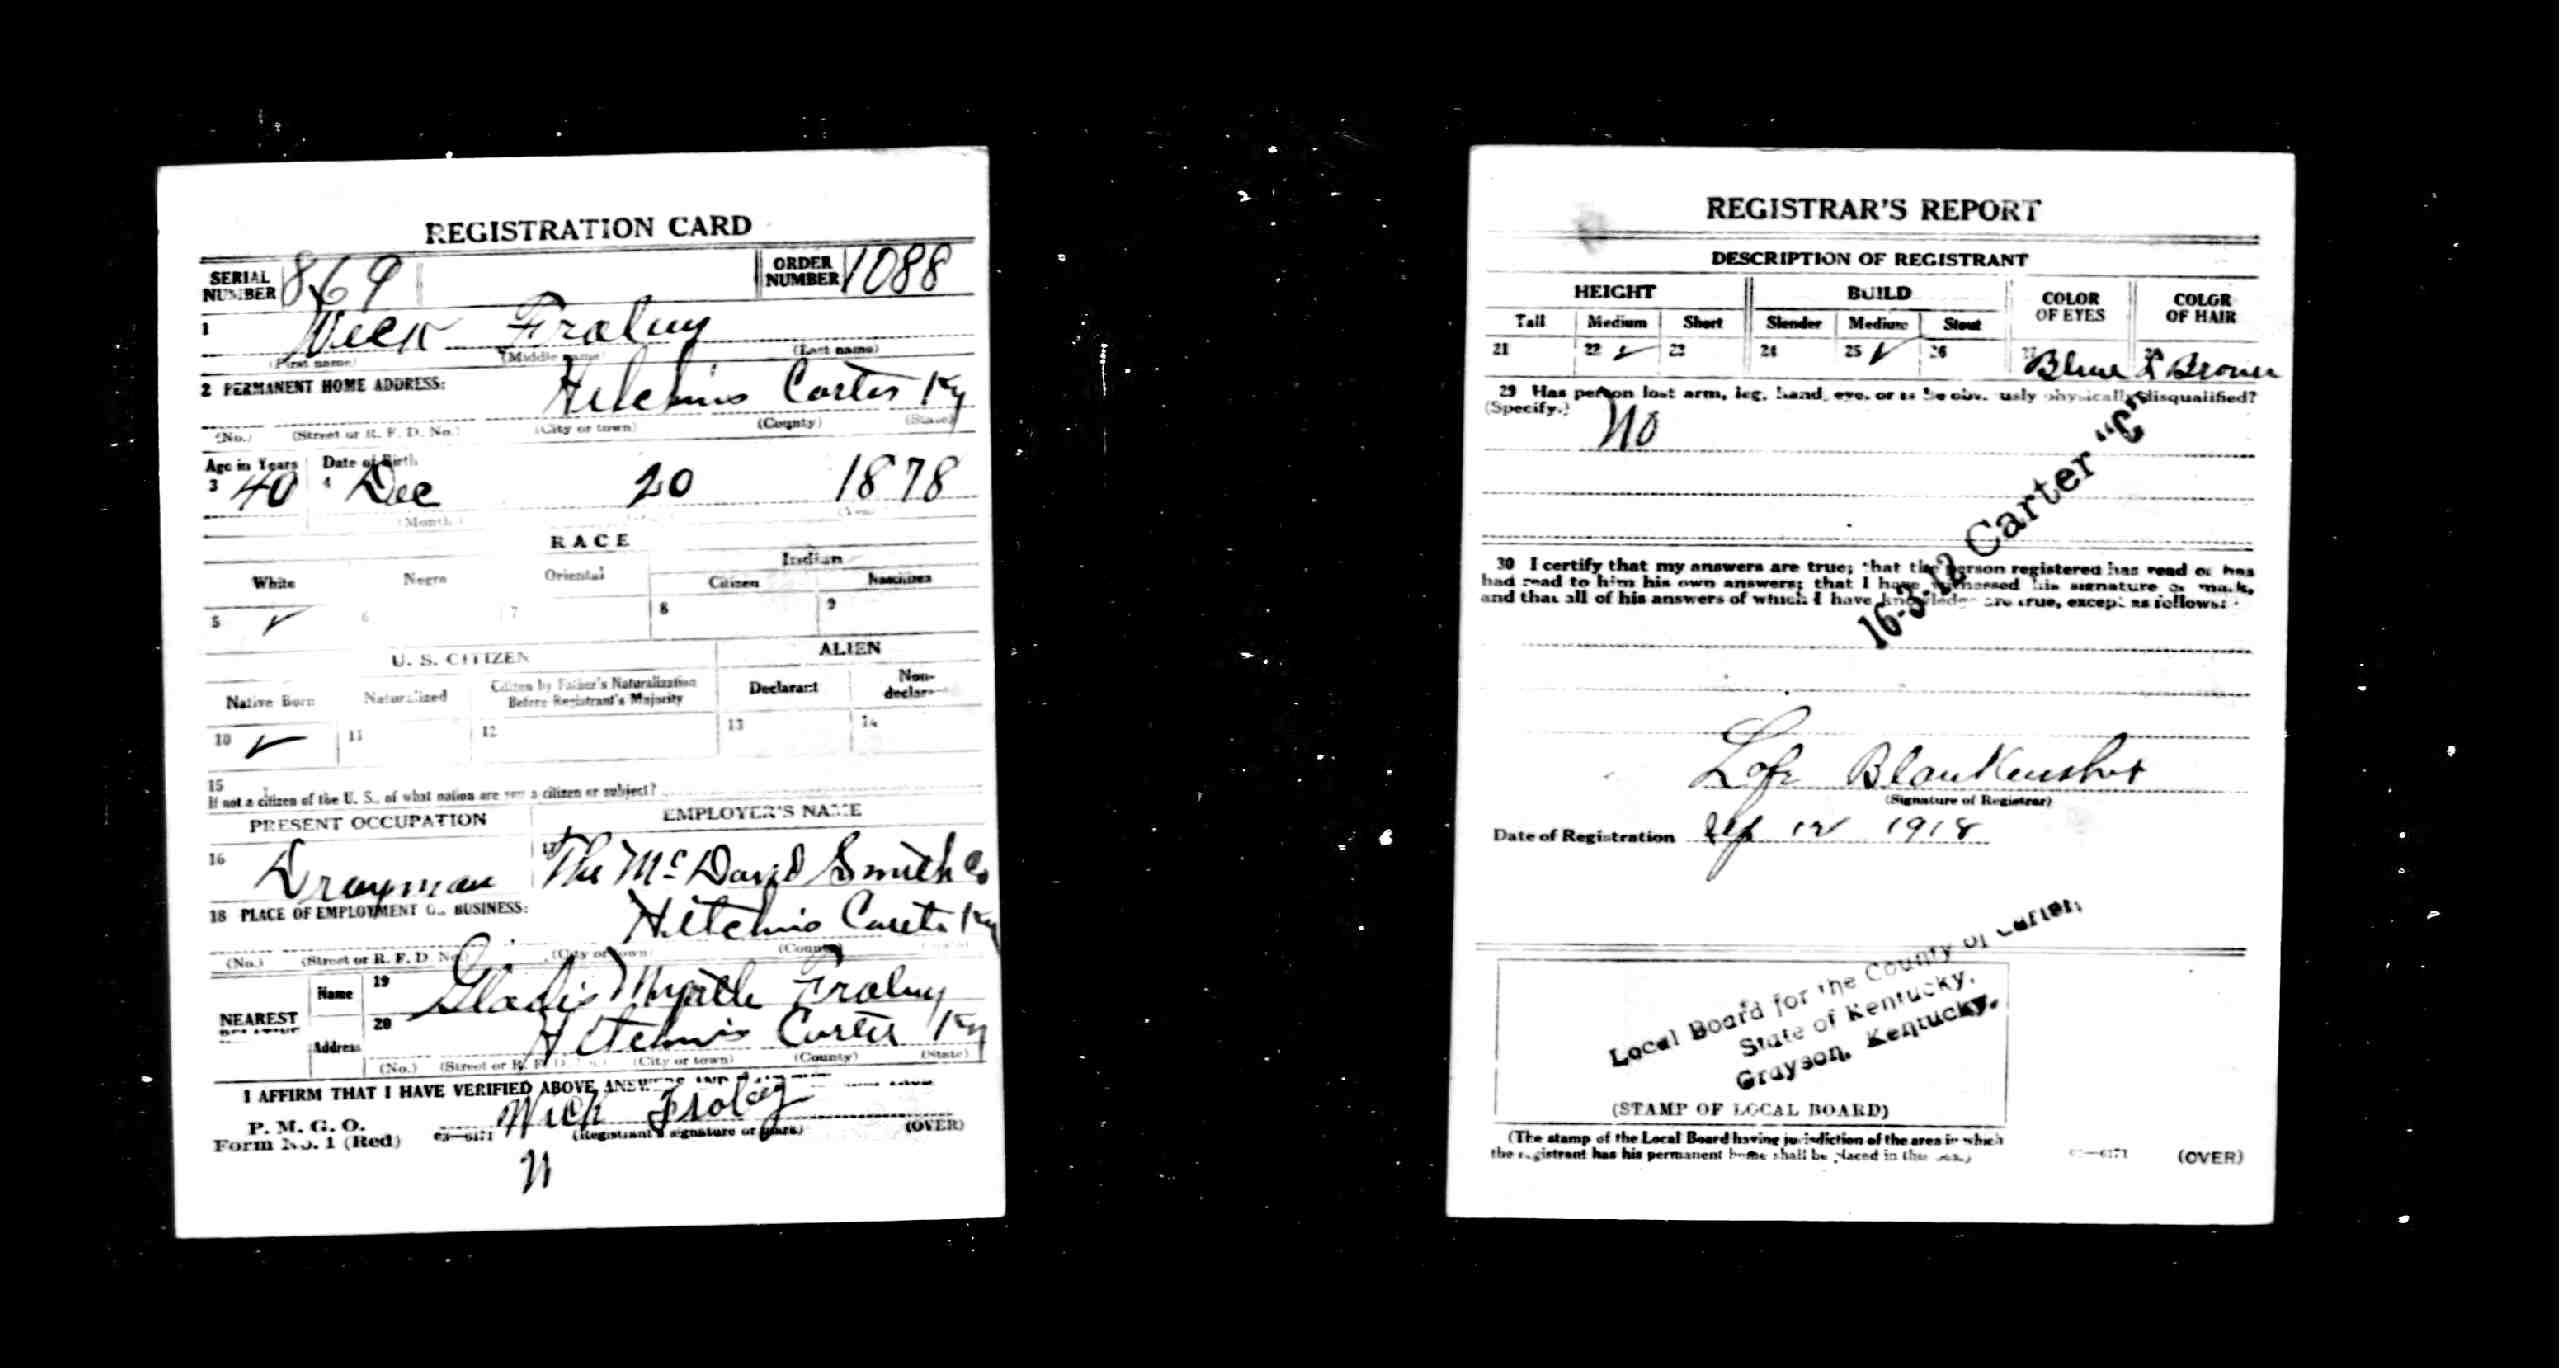 REGISTRATION CARD
SERIAL NUMBER 869 ORDER NUMBER 1088
1 Wick Fraley
(First name) (Middle name) (Last name)
2 PERMANENT HOME ADDRESS:
Hitchins Carter Ky
(No.) (Street or R. F. D. No.) (City or town) (County) (State)
Age in Years Date of Birth
3 40 4 Dec 20 1878
(Month) (Year)
RACE
White Negro Oriental Indian
Citizen Noncitizen
5 ✓ 6 7 8 9
U. S. CITIZEN ALIEN
Native Born Naturalized Citizen by Father's Naturalization Before Registrant's Majority Declarant Non-declarant
10 ✓ 11 12 13 14
15
If not a citizen of the U. S., of what nation are you a citizen or subject?
PRESENT OCCUPATION EMPLOYER'S NAME
16 Drayman 17 The McDavid Smith Co
18 PLACE OF EMPLOYMENT OR BUSINESS:
Hitchins Carter Ky
(No.) (Street or R. F. D. No.) (City or town) (County)
NEAREST RELATIVE
Name 19 Gladis Myrtle Fraley
Address 20 Hitchins Carter Ky
(No.) (Street or R. F. D. No.) (City or town) (County) (State)
I AFFIRM THAT I HAVE VERIFIED ABOVE ANSWERS AND
P. M. G. O.
Form No. 1 (Red) 03—6171 Wick Fraley
(Registrant's signature or mark) (OVER)
REGISTRAR'S REPORT
DESCRIPTION OF REGISTRANT
HEIGHT BUILD COLOR OF EYES COLOR OF HAIR
Tall Medium Short Slender Medium Stout
21 22 ✓ 23 24 25 ✓ 26 27 Blue 28 L Brown
29 Has person lost arm, leg, hand, eye, or is he obviously physically disqualified?
(Specify.) No
16-3-12 Carter "C"
30 I certify that my answers are true; that the person registered has read or has
had read to him his own answers; that I have witnessed his signature or mark,
and that all of his answers of which I have knowledge are true, except as follows:
Blankenship
(Signature of Registrar)
Date of Registration Sep 12 1918
Local Board for the County of Carter,
State of Kentucky,
Grayson, Kentucky.
(STAMP OF LOCAL BOARD)
(The stamp of the Local Board having jurisdiction of the area in which
the registrant has his permanent home shall be placed in this box.)
03—6171 (OVER)